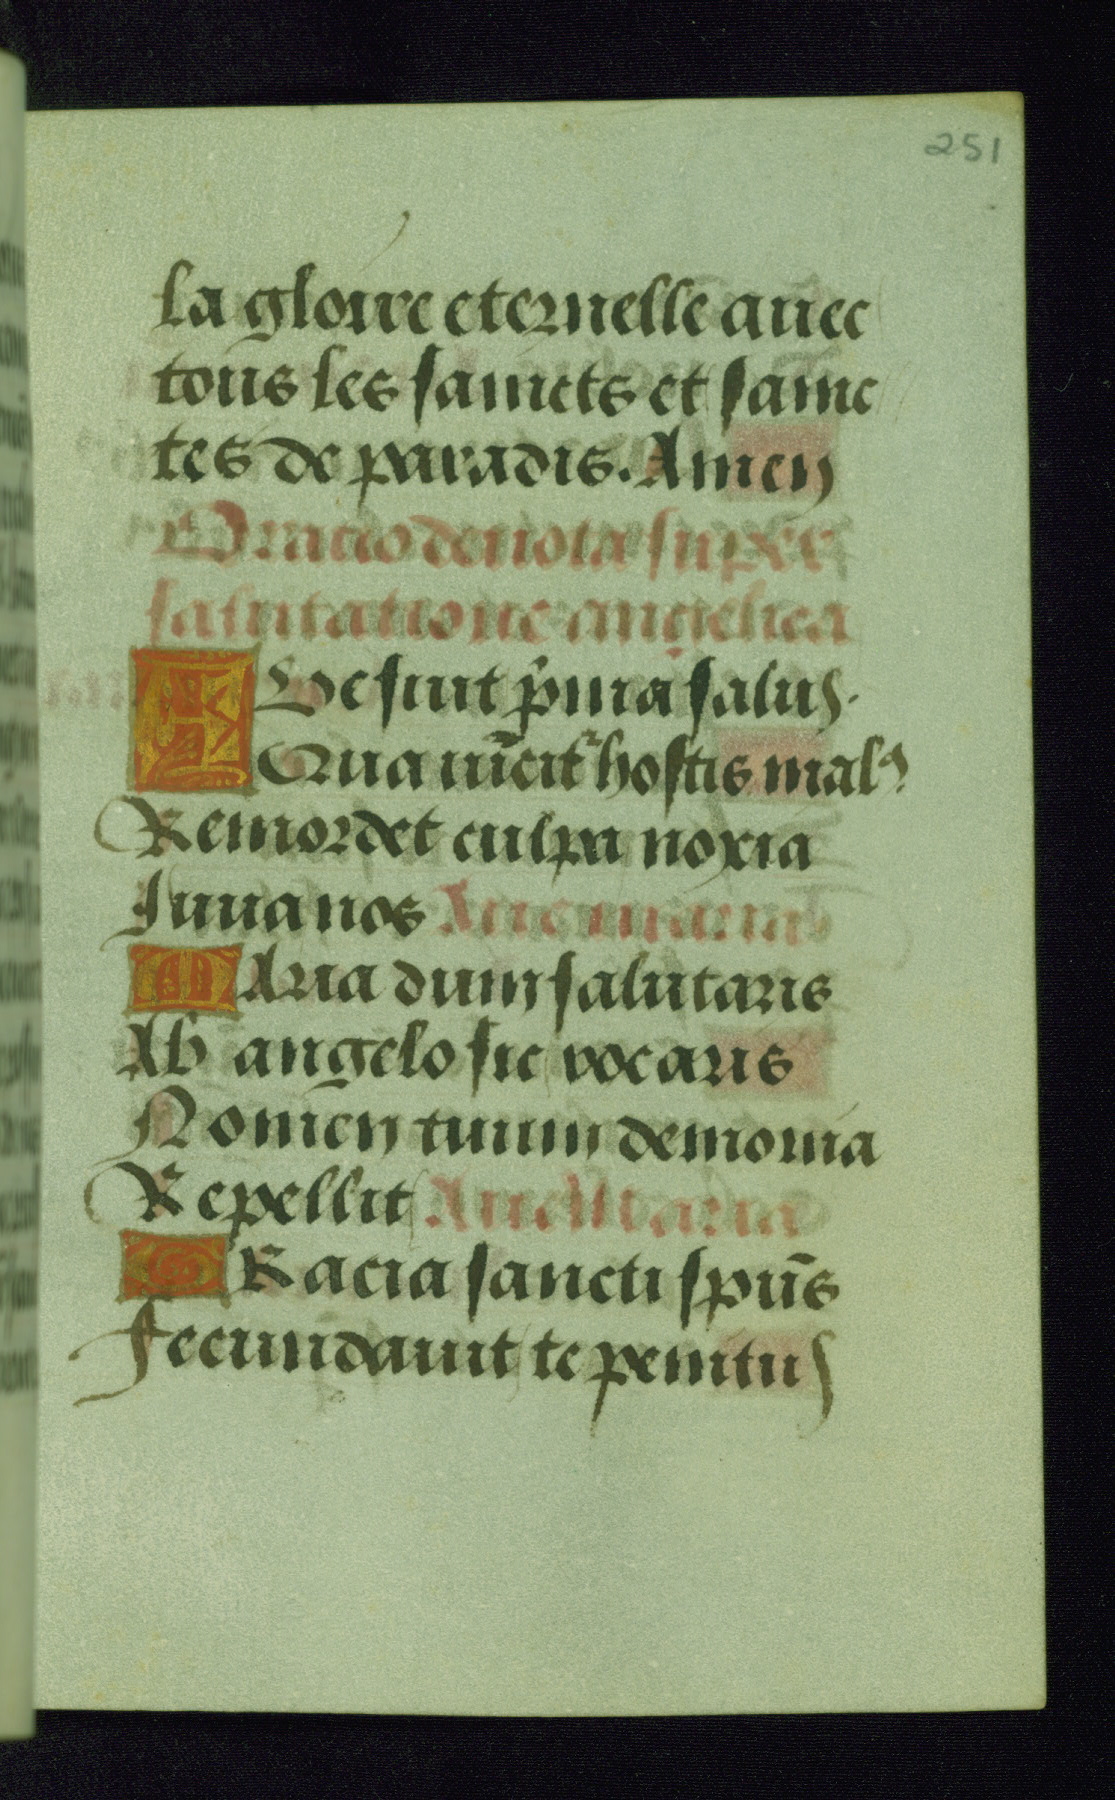 251
la gloire eternelle auec
tous les saincts et sainc
tes de paradis. Amen
Oracio deuota super
salutatione angelica
AVe sint p̄ma salus.
Qua uīcit᷑ hostis malꝰ.
Remordet culpa noxia
Iuua nos Aue maria
MAria dum salutaris
Ab angelo sic vocaris
Nomen tuum demonia
Repellit Aue Maria
GRacia sancti spūs
Fecundauit te penitus